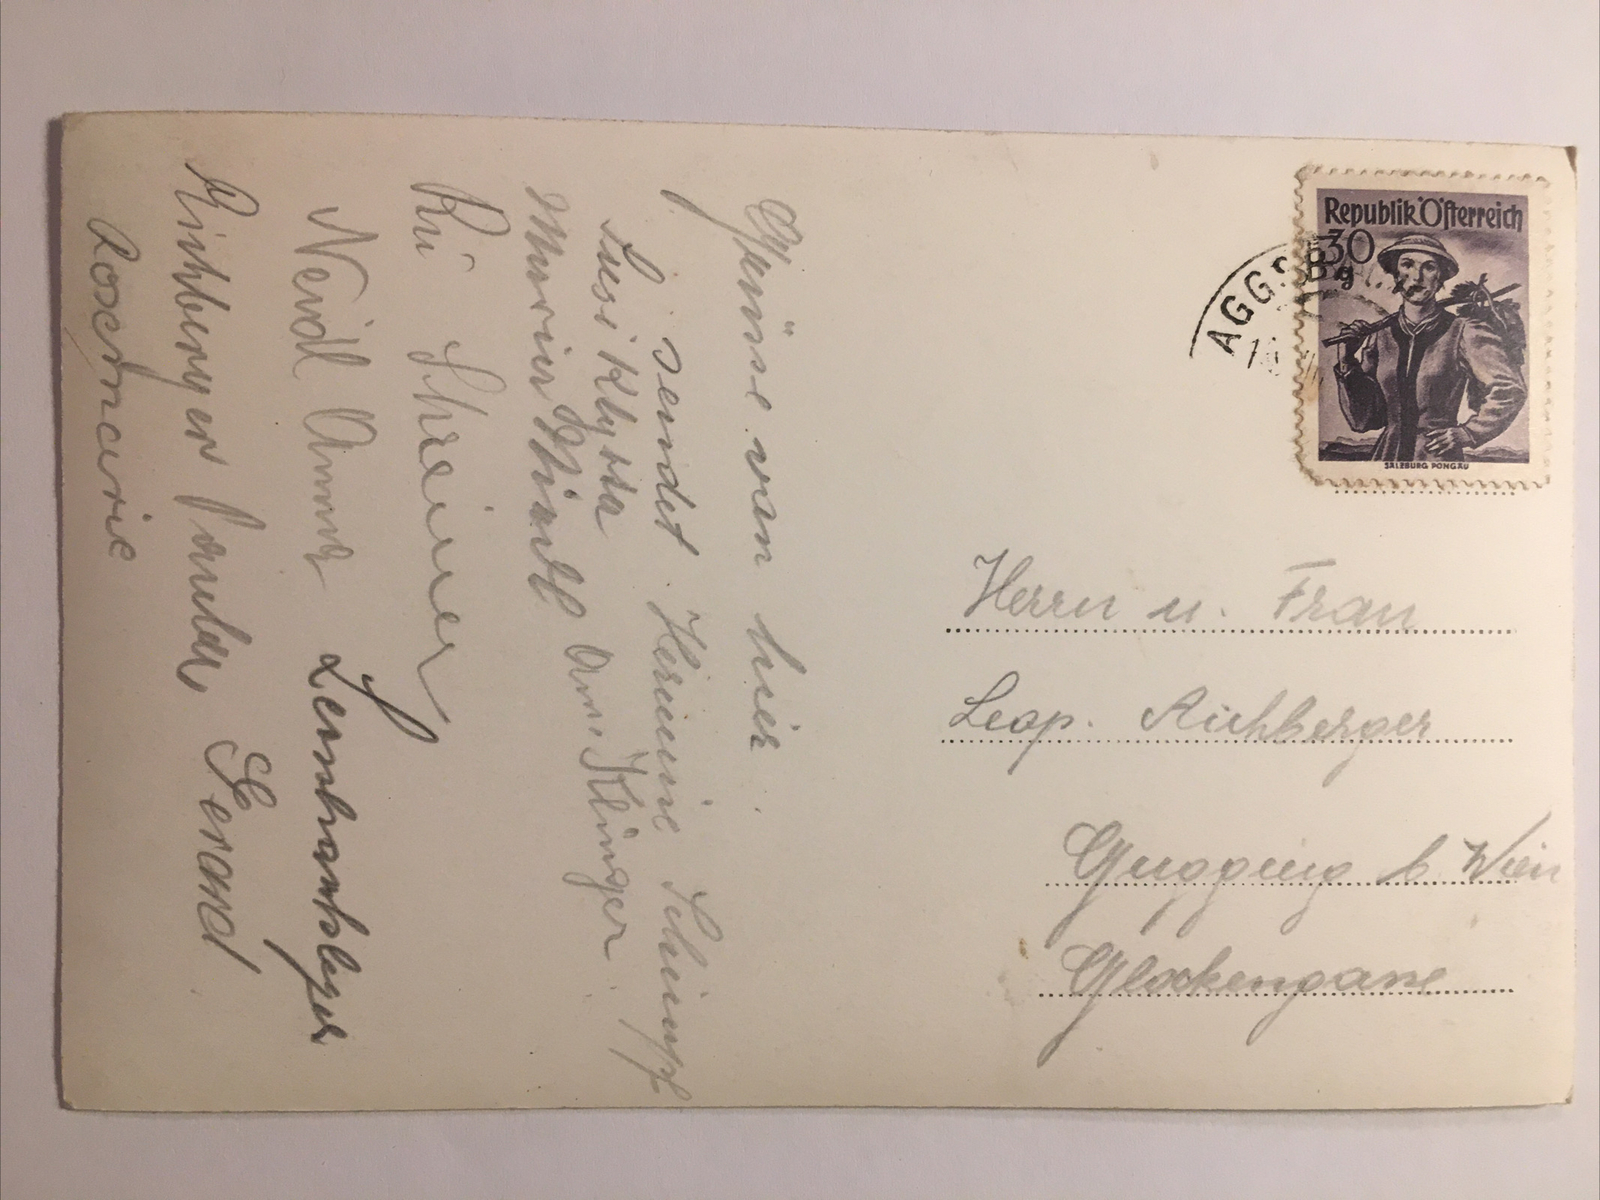 Grüsse von hier.
sendet Hermine Schimpf
Susi Klyssa
Maria Windl Anna Klinger.
Schreiner
Neidl Anna Leonhartsberger
Aichberger Paula Gerard
Rosemarie
Republik Österreich
30
g
SALZBURG PONGAU
AGGSB
Herrn u. Frau
Leop. Aichberger
Gugging b Wien
Glockengasse